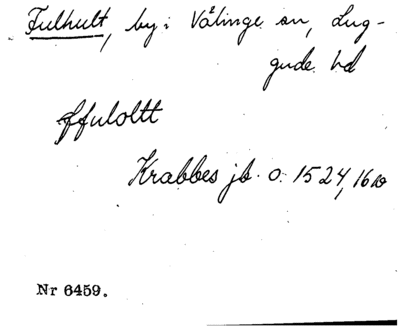 Fulhult, by i Välinge sn, Lug-
gude hd
ffuloltt
Krabbes jb. o. 1524, 16
Nr 6459.